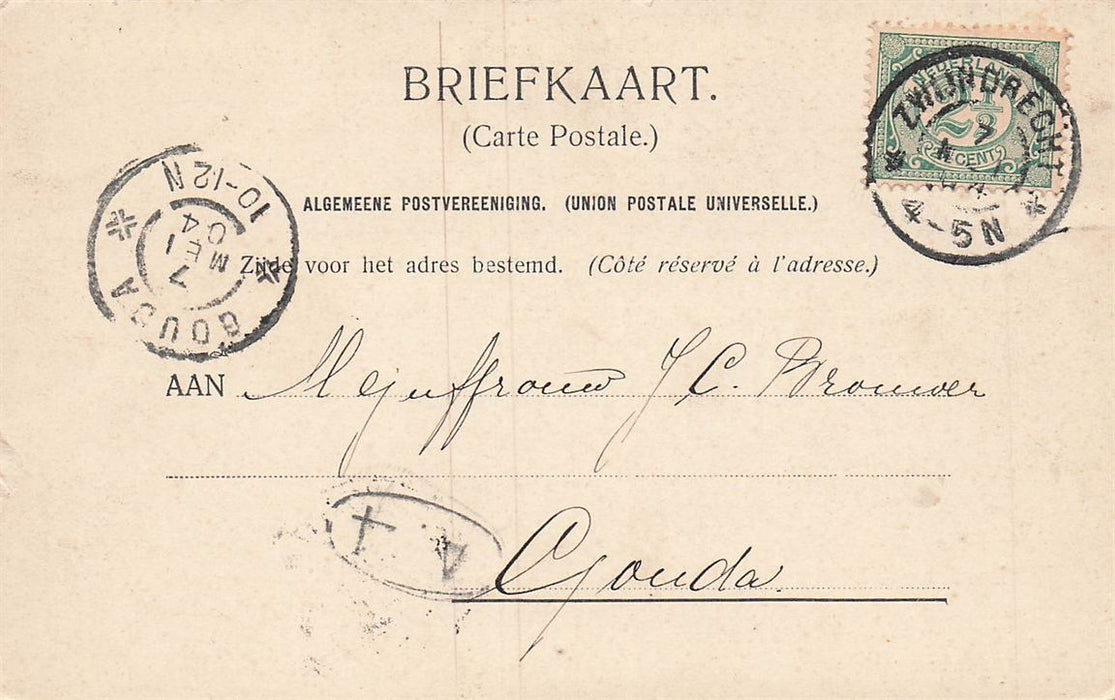 BRIEFKAART.
(Carte Postale.)
ALGEMEENE POSTVEREENIGING. (UNION POSTALE UNIVERSELLE.)
Zijde voor het adres bestemd. (Côté réservé à l'adresse.)
NEDERLAND
2½
CENT
ZWIJNDRECHT
7
4-5N
GOUDA
10-12N
7
MEI
04
AAN Mejuffrouw J C. Brouwer
4
Gouda